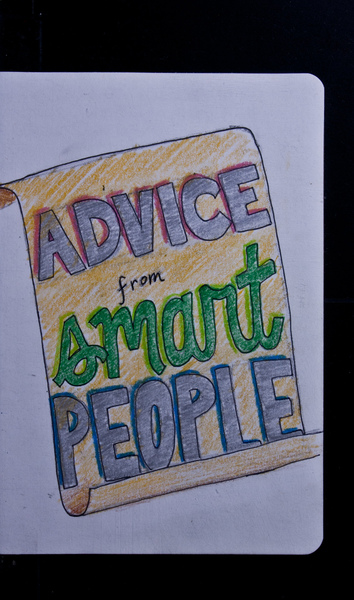 ADVICE
from
smart
PEOPLE